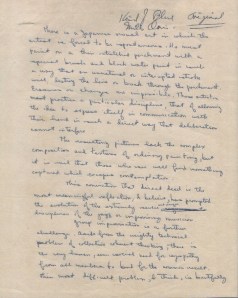 Original
There is a Japanese visual art in which the
artist is forced to be spontaneous. He must
paint on a thin stretched parchment with a
special brush and black water paint in such
a way that an unnatural or interrupted stroke
will destroy the line or break through the parchment.
Erasures or changes are impossible. These artists
must practice a particular discipline, that of allowing
the idea to express itself in communication with
their hands in such a direct way that deliberation
cannot interfere.
The resulting pictures lack the complex
composition and textures of ordinary painting, but
it is said that those who see well find something
captured which escapes explanation.
This conviction that direct deed is the
most meaningful reflection, I believe, has prompted
the evolution of the extremely severe and unique
disciplines of the jazz or improvising musician.
Group improvisation is a further
challenge. Aside from the weighty technical
problem of collective coherent thinking, there is
the very human, even social need for sympathy
from all members to bend for the common result.
This most difficult problem, I think, is beautifully